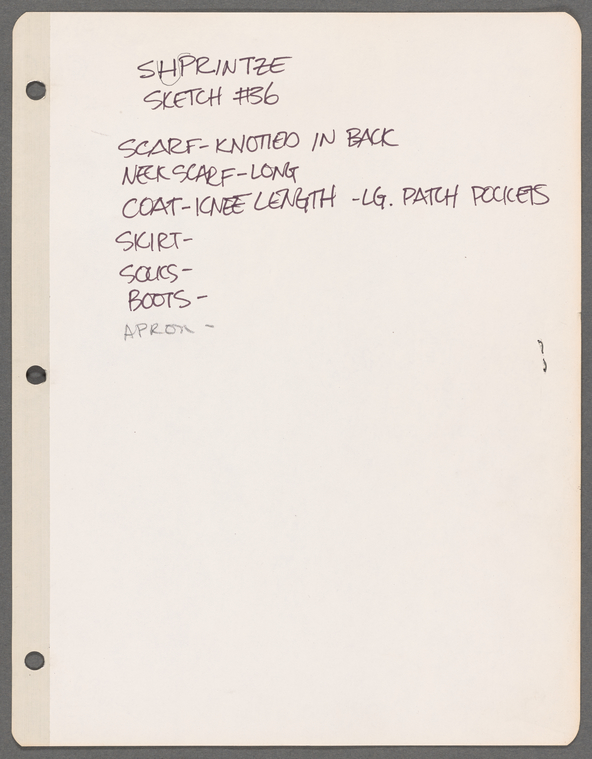 SHPRINTZE
SKETCH #36
SCARF-KNOTTED IN BACK
NECK SCARF-LONG
COAT-KNEE LENGTH -LG. PATCH POCKETS
SKIRT-
SOCKS-
BOOTS-
APRON -